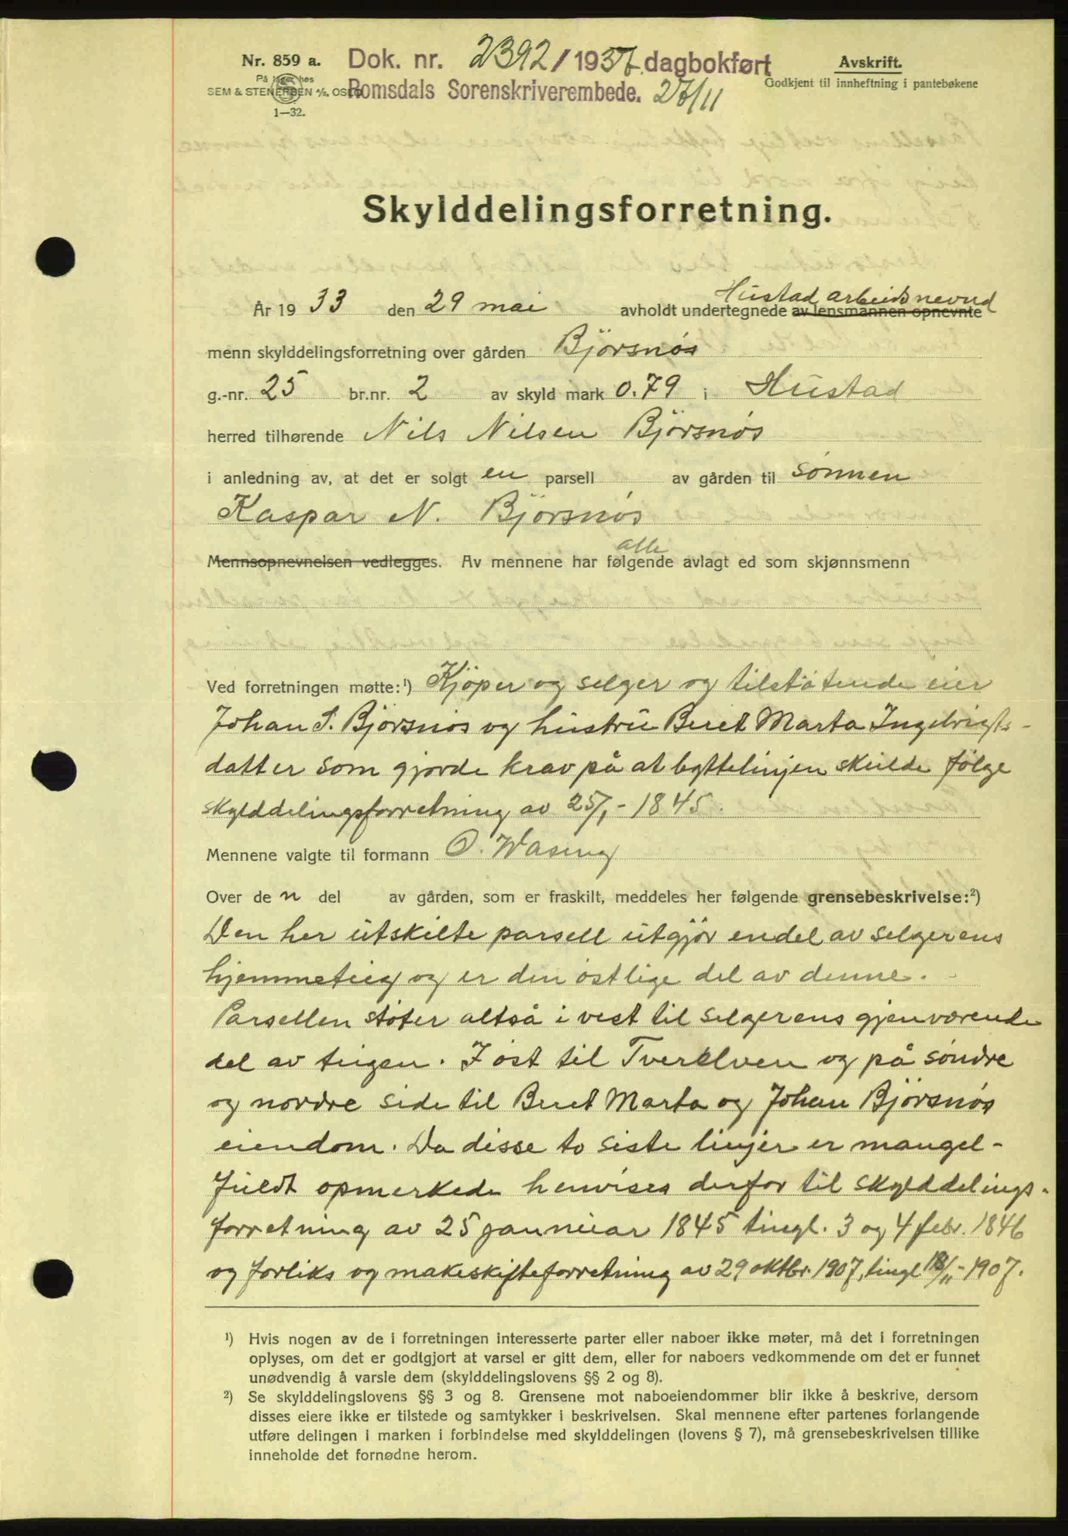 Nr. 859 a.
På lager hos
SEM & STENERSEN A/S, OSLO
1—32.
Dok. nr. 2392/1937 dagbokført
Romsdals Sorenskriverembede. 27/11
Avskrift.
Godkjent til innheftning i pantebøkene
Skylddelingsforretning.
Hustad arbeidsnevnd
År 1933 den 29 mai avholdt undertegnede av lensmannen opnevnte
menn skylddelingsforretning over gården Björsnøs
g.-nr. 25 br.nr. 2 av skyld mark 0.79 i Hustad
herred tilhørende Nils Nilsen Björsnøs
i anledning av, at det er solgt en parsell av gården til sønnen
Kaspar N. Björsnøs
alle
Mennsopnevnelsen vedlegges. Av mennene har følgende avlagt ed som skjønnsmenn
Ved forretningen møtte:¹) Kjøper og selger og tilstøtende eier
Johan S. Björsnøs og hustru Beret Marta Ingebrigts-
datter som gjorde krav på at byttelinjen skulde følge
skylddelingsforretning av 25/1-1845.
Mennene valgte til formann O. Waseng
Over den del av gården, som er fraskilt, meddeles her følgende grensebeskrivelse:²)
Den her utskilte parsell utgjör endel av selgerens
hjemmeteig og er den østlige del av denne.
Parsellen støter altså i vest til selgerens gjenværende
del av teigen. I øst til Tverelven og på søndre
og nordre side til Beret Marta og Johan Björsnøs
eiendom. Da disse to siste linjer er mangel-
fuldt opmerkede henvises derfor til skylddelings-
forretning av 25 januar 1845 tingl. 3 og 4 febr. 1846
og forliks og makeskifteforretning av 29 oktbr. 1907, tingl 18/11-1907.
¹) Hvis nogen av de i forretningen interesserte parter eller naboer ikke møter, må det i forretningen
oplyses, om det er godtgjort at varsel er gitt dem, eller for naboers vedkommende om det er funnet
unødvendig å varsle dem (skylddelingslovens §§ 2 og 8).
²) Se skylddelingslovens §§ 3 og 8. Grensene mot naboeiendommer blir ikke å beskrive, dersom
disses eiere ikke er tilstede og samtykker i beskrivelsen. Skal mennene efter partenes forlangende
utføre delingen i marken i forbindelse med skylddelingen (lovens § 7), må grensebeskrivelsen tillike
inneholde det fornødne herom.